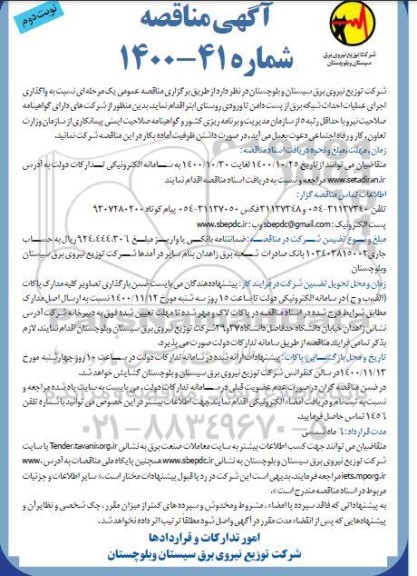 نوبت دوم
آگهی مناقصه
شماره ۴۱-۱۴۰۰
شرکت توزیع نیروی برق
سیستان و بلوچستان
شرکت توزیع نیروی برق سیستان و بلوچستان در نظر دارد از طریق برگزاری مناقصه عمومی یک مرحله‌ای نسبت به واگذاری
اجرای عملیات احداث شبکه برق از پست دامن تا ورودی روستای ابتر اقدام نماید، بدین منظور از شرکت های دارای گواهینامه
صلاحیت نیرو با حداقل رتبه ۵ از سازمان مدیریت و برنامه ریزی کشور و گواهینامه صلاحیت ایمنی پیمانکاری از سازمان وزارت
تعاون، کار و رفاه اجتماعی دعوت بعمل می آید، در صورت داشتن ظرفیت آماده بکار در این مناقصه شرکت نمایند.
زمان، مهلت، مبلغ و نحوه دریافت اسناد مناقصه:
متقاضیان می توانند از تاریخ ۱۴۰۰/۱۰/۲۵ لغایت ۱۴۰۰/۱۰/۳۰ به سامانه الکترونیکی تدارکات دولت به آدرس
www.setadiran.ir مراجعه و نسبت به دریافت اسناد مناقصه اقدام نمایند
اطلاعات تماس مناقصه گزار:
تلفن ۳۱۱۳۷۳۴۰-۰۵۴ و ۳۱۱۳۷۳۴۸ فکس ۳۱۱۳۷۰۵۰-۰۵۴ پیام کوتاه ۹۳۰۷۲۸۰۲۰۰
پست الکترونیک: sbepdc@gmail.com وب: www.sbepdc.ir
مبلغ و نوع تضمین شرکت در مناقصه: ضمانتنامه بانکی یا واریز مبلغ ۹۲۴،۴۴۴،۳۰۶ ریال به حساب
جاری ۰۱۰۳۴۰۳۸۱۵۰۰۲ بانک صادرات شعبه برق زاهدان بنام سایر درآمدها شرکت توزیع نیروی برق سیستان
وبلوچستان
زمان و محل تحویل تضمین شرکت در فرایند کار: پیشنهاددهندگان می بایست ضمن بارگذاری تصاویر کلیه مدارک پاکات
(الف و ب و ج) در سامانه الکترونیکی دولت تا ساعت ۱۵ روز سه شنبه مورخ ۱۴۰۰/۱۱/۱۲ نسبت به ارسال اصل مدارک
مطابق شرایط درج شده در اسناد مناقصه در پاکات لاک و مهر شده تا مهلت تعیین شده فوق به دبیرخانه شرکت آدرس
نشانی زاهدان خیابان دانشگاه حدفاصل دانشگاه ۳۷ و ۳۹ شرکت توزیع نیروی برق سیستان وبلوچستان اقدام نمایند. لازم
بذکر تمامی فرایند مناقصه از طریق سامانه تدارکات دولت صورت می پذیرد.
تاریخ و محل بازگشایی پاکات: پیشنهادات ارائه شده در سامانه تدارکات دولت در ساعت ۱۰ روز چهارشنبه مورخ
۱۴۰۰/۱۱/۱۳ در سالن کنفرانس شرکت توزیع نیروی برق سیستان و بلوچستان گشایش خواهد شد.
در ضمن مناقصه گران در صورت عدم عضویت قبلی در سامانه تدارکات دولت، می بایست به سایت یاد شده مراجعه و
نسبت به ثبت نام و دریافت امضاء الکترونیکی اقدام نمایند جهت اطلاعات بیشتر در این خصوص می توانید با شماره تلفن
۱۴۵۶ تماس حاصل فرمایید.
مدت قرارداد: ۶ ماه شمسی
متقاضیان می توانند جهت کسب اطلاعات بیشتر به سایت معاملات صنعت برق به نشانی Tender.tavanir.org.ir یا سایت
شرکت توزیع نیروی برق سیستان و بلوچستان به نشانی www.sbepdc.ir همچنین پایگاه ملی مناقصات به آدرس www.
iets.mporg.ir مراجعه فرمایند، بدیهی است این شرکت در رد یا قبول پیشنهادات مختار است.« سایر اطلاعات و جزئیات
مربوط در اسناد مناقصه مندرج است».
به پیشنهاداتی که فاقد سپرده یا امضاء، مشروط و مخدوش و سپرده های کمتر از میزان مقرر، چک شخصی و نظایر آن و
پیشنهادهایی که پس از انقضاء مدت مقرر در آگهی واصل شود مطلقا ترتیب اثر داده نخواهد شد.
امور تدارکات و قراردادها
شرکت توزیع نیروی برق سیستان وبلوچستان
۰۲۱-۸۸۳۴۹۶۷۰-۵